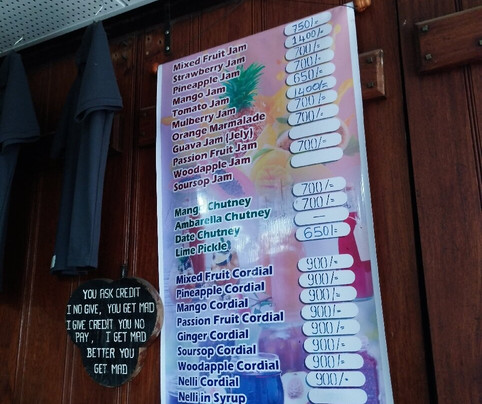 Mixed Fruit Jam 750/=
Strawberry Jam 1400/=
Pineapple Jam 700/=
Mango Jam 700/=
Tomato Jam 650/=
Mulberry Jam 1400/=
Orange Marmalade 700/=
Guava Jam (Jely) 700/=
Passion Fruit Jam
Woodapple Jam 700/=
Soursop Jam
Mango Chutney 700/=
Ambarella Chutney 700/=
Date Chutney —
Lime Pickle 650/=
Mixed Fruit Cordial 900/=
Pineapple Cordial 900/=
Mango Cordial 900/=
Passion Fruit Cordial 900/=
Ginger Cordial 900/=
Soursop Cordial 900/=
Woodapple Cordial 900/=
Nelli Cordial 900/=
Nelli in Syrup
YOU ASK CREDIT
I NO GIVE, YOU GET MAD
I GIVE CREDIT YOU NO
PAY, I GET MAD
BETTER YOU
GET MAD